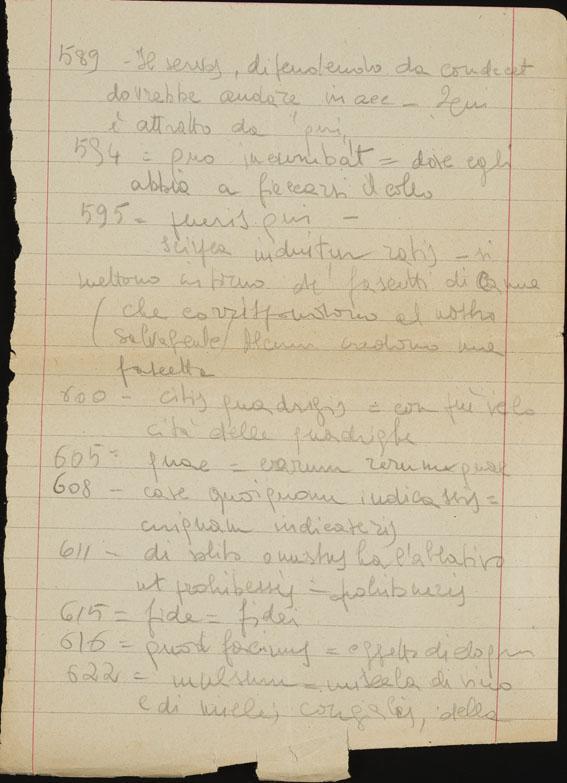 589 - Il servus, dipendendo da condecet
dovrebbe andare in acc -
è attratto da "qui"
594 = quo incumbat = dove egli
abbia a fiaccarsi il collo
595 = pueris qui -
scirpea induitur ratis - si
mettono intorno dei fascetti di canne
(che corrispondono al nostro
salvagente) Alcuni credono una
fascetta
600 - citis quadrigis = con più velo
cità delle quadrighe
605 = quae = earum rerum quae
608 - cave quoiquam indicassis =
cuiquam indicaveris
611 - di solito onustus ha l'ablativo
ut prohibessis = prohibueris
615 = fide = fidei
616 = quod facinus = oggetto di
622 = mulsum = miscela di vino
e di miele; congialis, della